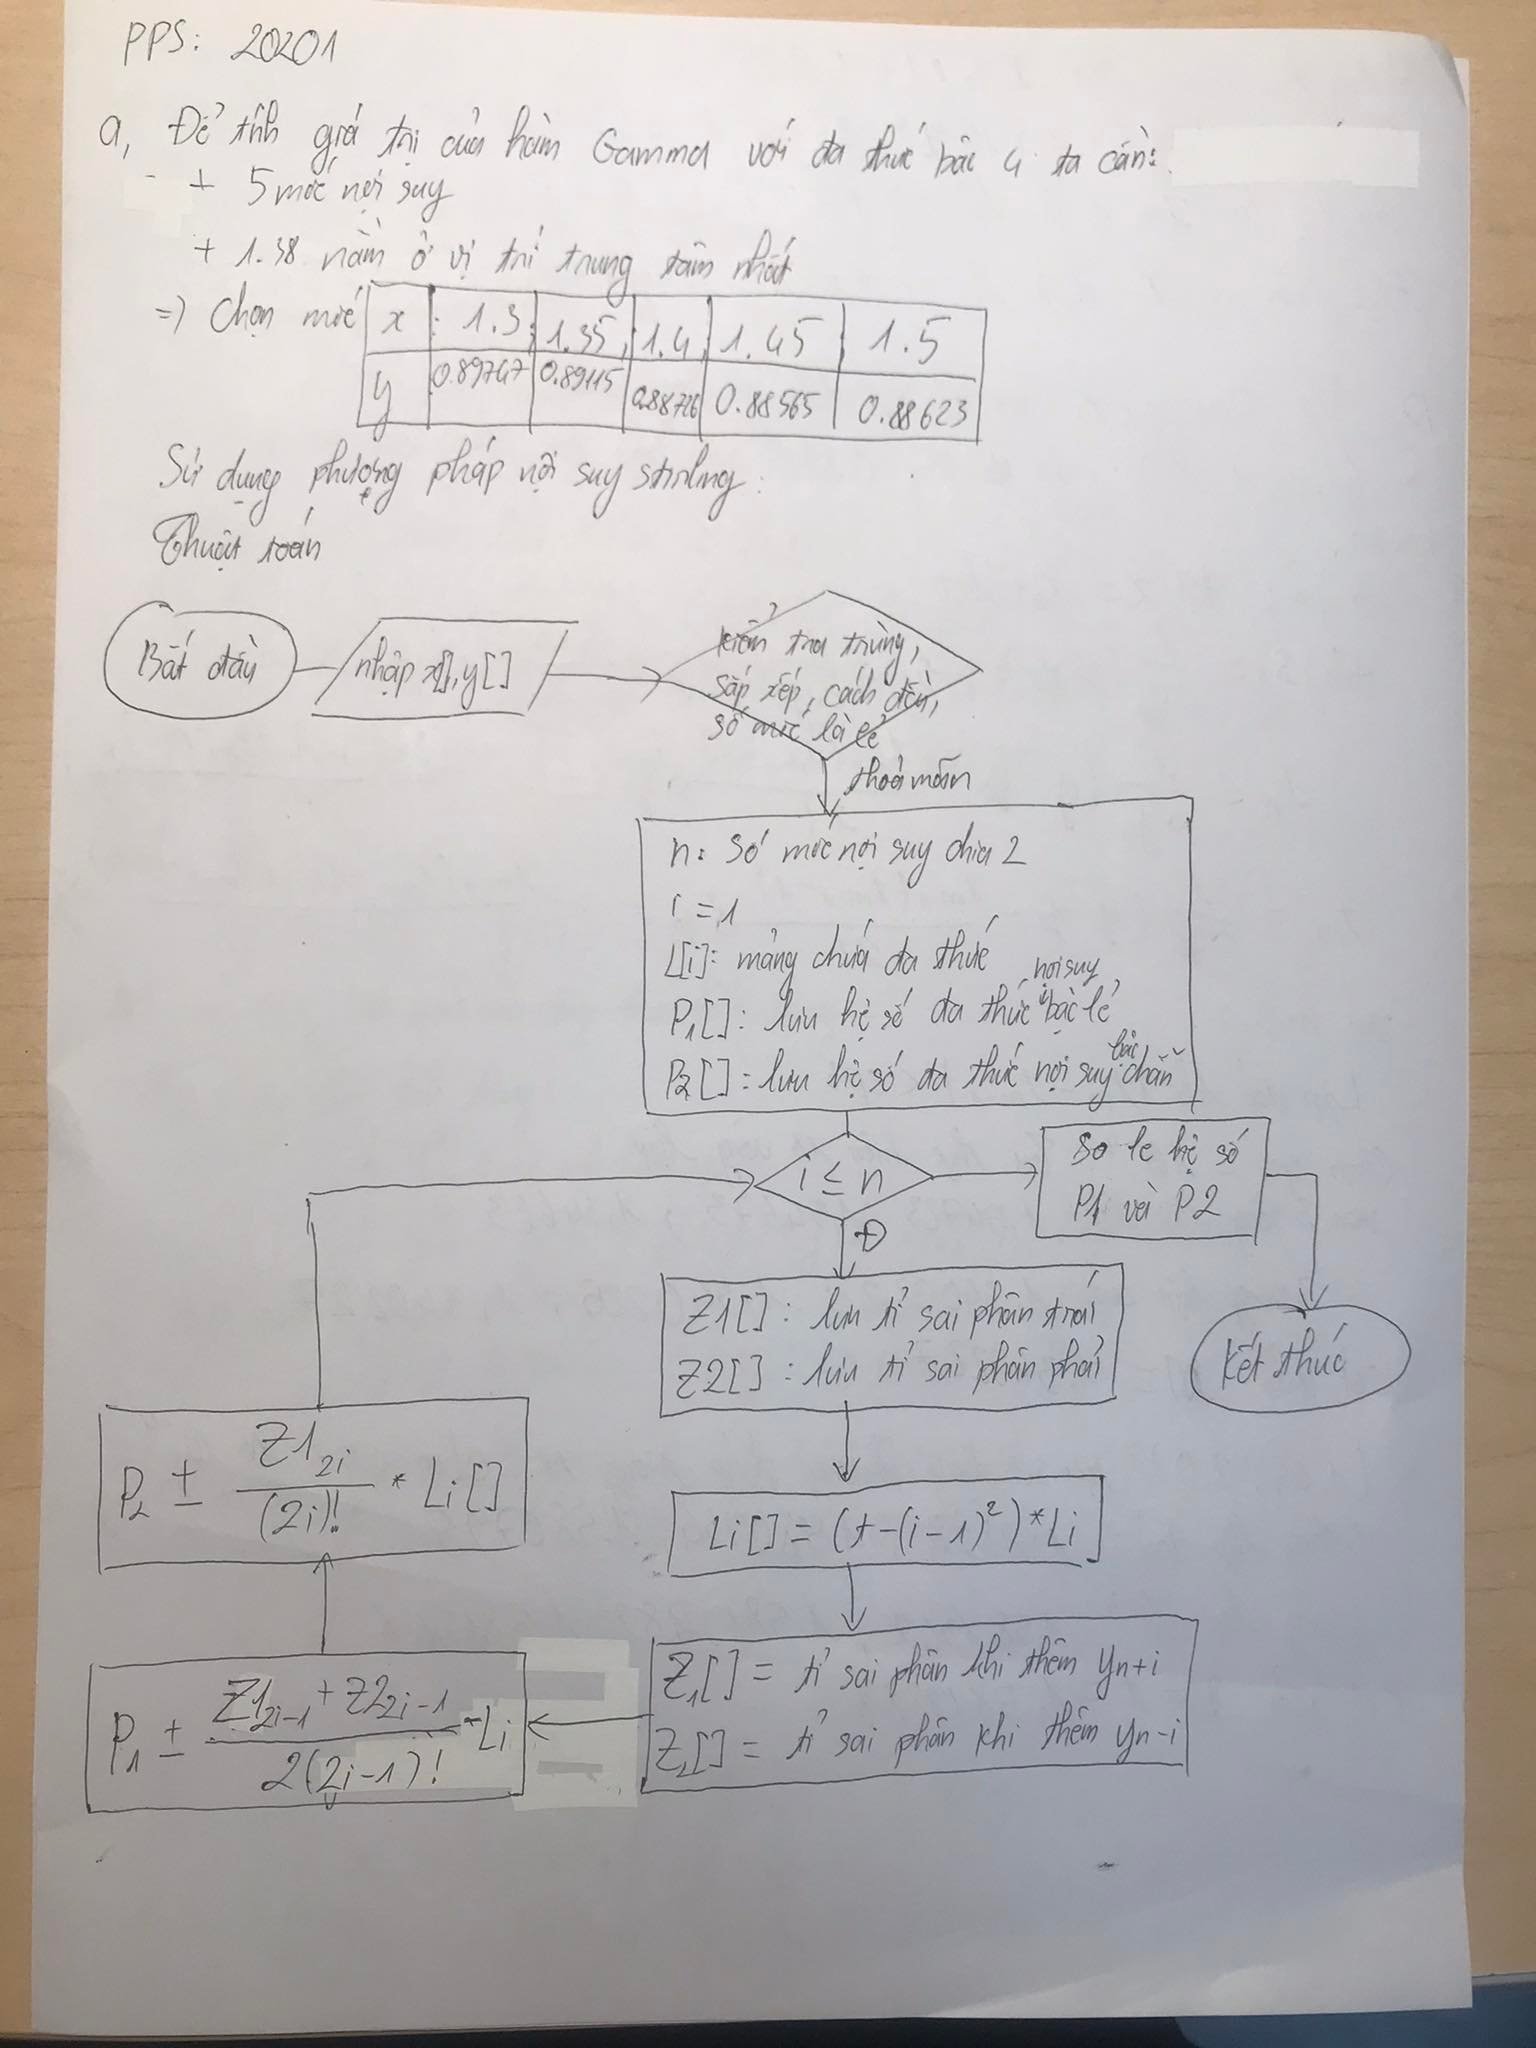 PPS: 20201
a, Để tính giá trị của hàm Gamma với đa thức bậc 4 ta cần:
+ 5 mốc nội suy
+ 1.38 nằm ở vị trí trung tâm nhất
=) Chọn mốc x : 1.3, 1.35, 1.4, 1.45 1.5
y 0.89747 0.89115 0.88726 0.88565 0.88623
Sử dụng phương pháp nội suy stirling:
Thuật toán
Bắt đầu
nhập x[], y[]
kiểm tra trùng,
sắp xếp, cách đều,
số mốc là lẻ
thoả mãn
n: số mốc nội suy chia 2
i = 1
L[i]: mảng chứa đa thức
P1[]: lưu hệ số đa thức nội suy bậc lẻ
P2[]: lưu hệ số đa thức nội suy bậc chẵn
i ≤ n
So le hệ số
P1 và P2
Đ
Kết thúc
Z1[]: lưu tỉ sai phân trái
Z2[]: lưu tỉ sai phân phải
Li[] = (t-(i-1)²)*Li
Z1[] = tỉ sai phân khi thêm yn+i
Z2[] = tỉ sai phân khi thêm yn-i
P1 ± (Z1 2i-1 + Z2 2i-1) / 2(2i-1)! * Li
P2 ± Z1 2i / (2i)! * Li[]